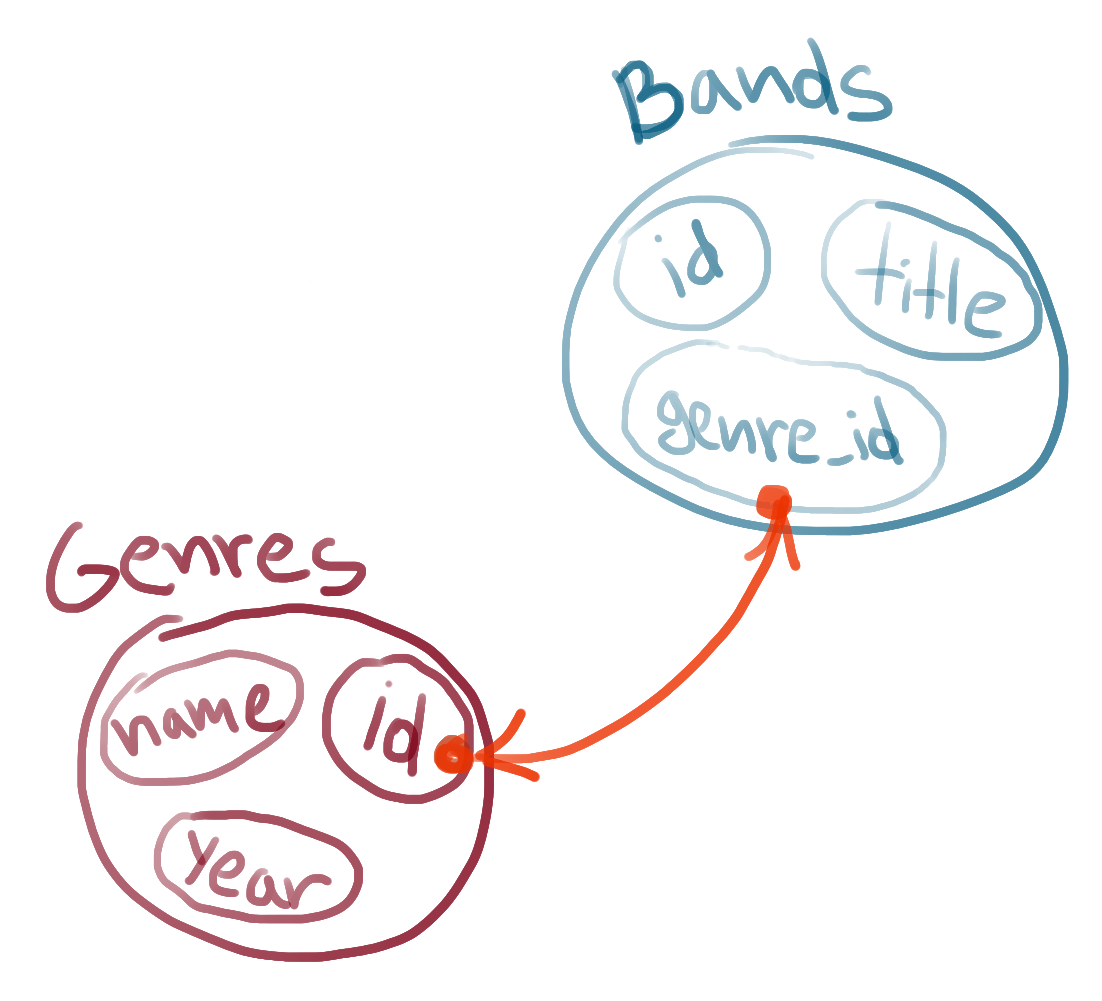 Bands
id
title
genre_id
Genres
name
id
year